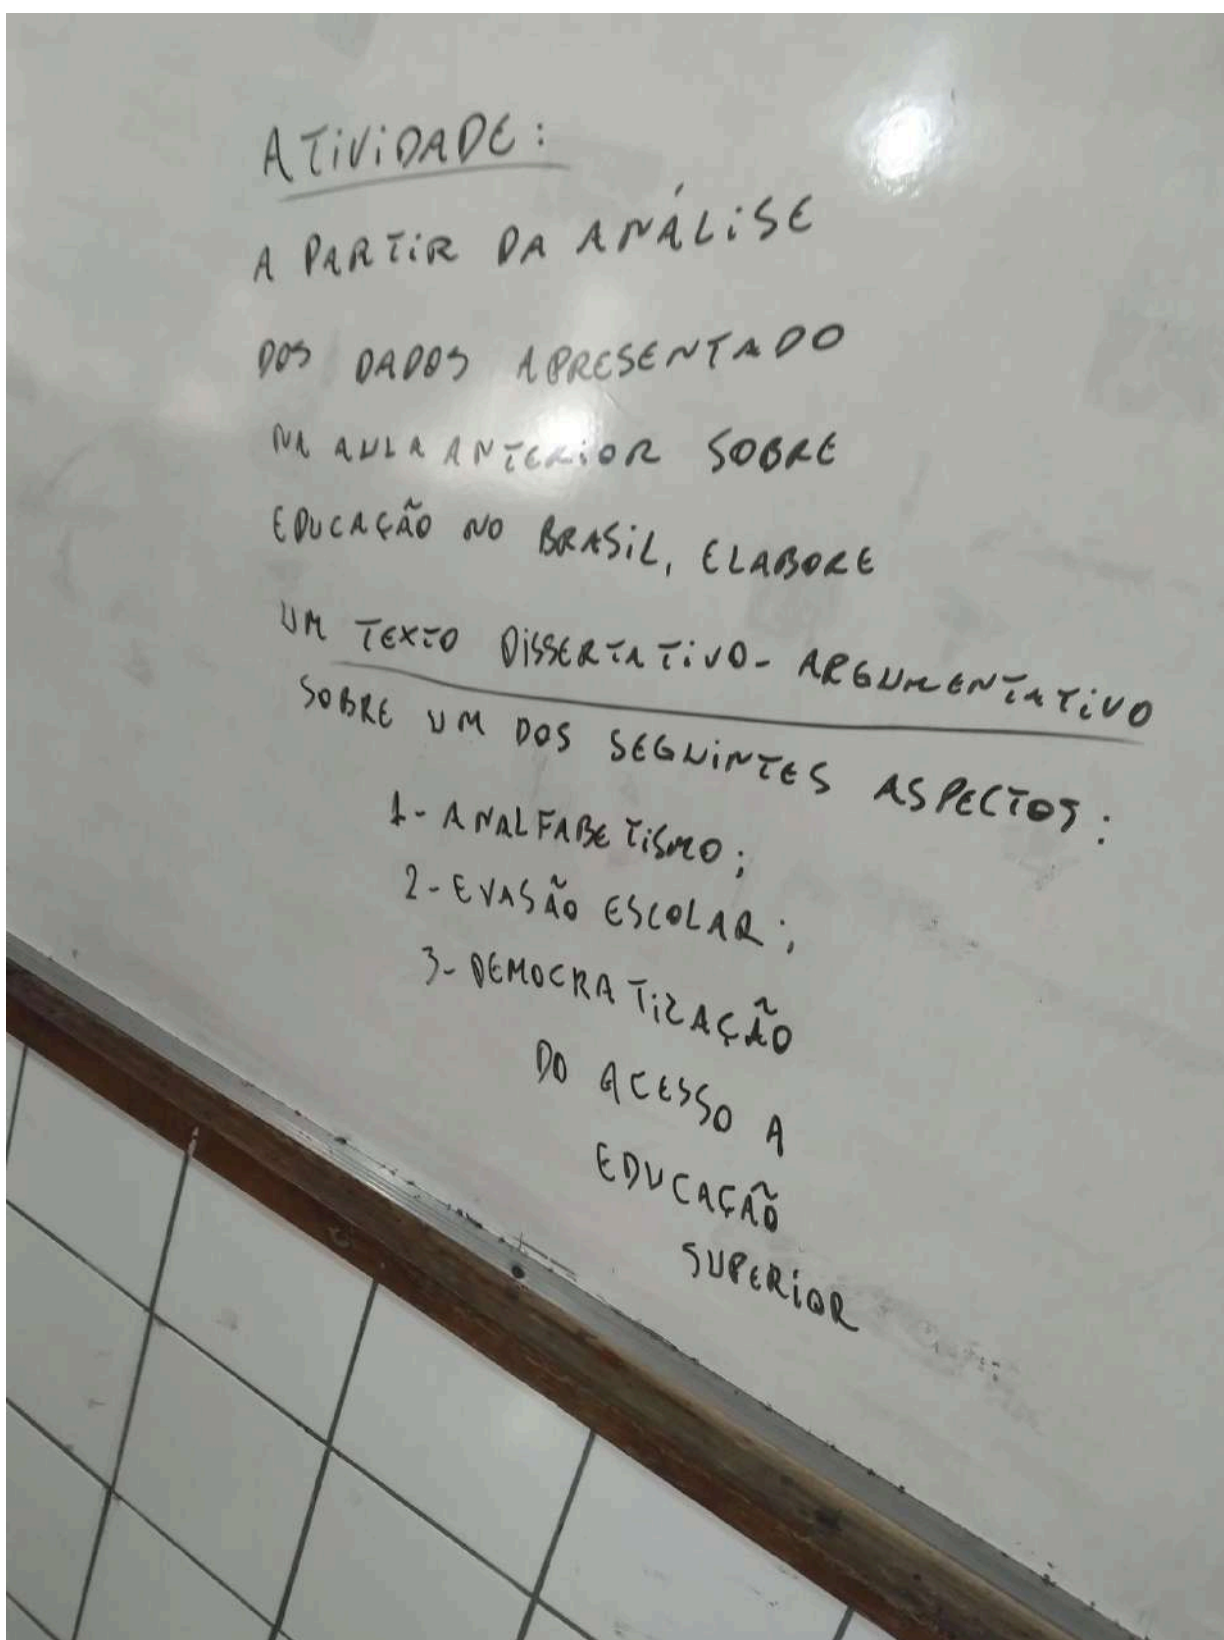 ATIVIDADE:
A PARTIR DA ANÁLISE
DOS DADOS APRESENTADO
NA AULA ANTERIOR SOBRE
EDUCAÇÃO NO BRASIL, ELABORE
UM TEXTO DISSERTATIVO-ARGUMENTATIVO
SOBRE UM DOS SEGUINTES ASPECTOS:
1-ANALFABETISMO;
2-EVASÃO ESCOLAR;
3-DEMOCRATIZAÇÃO
DO ACESSO A
EDUCAÇÃO
SUPERIOR